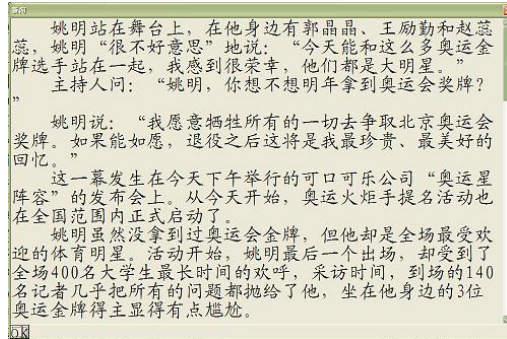 姚明站在舞台上，在他身边有郭晶晶、王励勤和赵蕊
蕊，姚明“很不好意思”地说：“今天能和这么多奥运金
牌选手站在一起，我感到很荣幸，他们都是大明星。”
主持人问：“姚明，你想不想明年拿到奥运会奖牌？
”
姚明说：“我愿意牺牲所有的一切去争取北京奥运会
奖牌。如果能如愿，退役之后这将是我最珍贵、最美好的
回忆。”
这一幕发生在今天下午举行的可口可乐公司“奥运星
阵容”的发布会上。从今天开始，奥运火炬手提名活动也
在全国范围内正式启动了。
姚明虽然没拿到过奥运会金牌，但他却是全场最受欢
迎的体育明星。活动开始，姚明最后一个出场，却受到了
全场400名大学生最长时间的欢呼，采访时间，到场的140
名记者几乎把所有的问题都抛给了他，坐在他身边的3位
奥运金牌得主显得有点尴尬。
ok